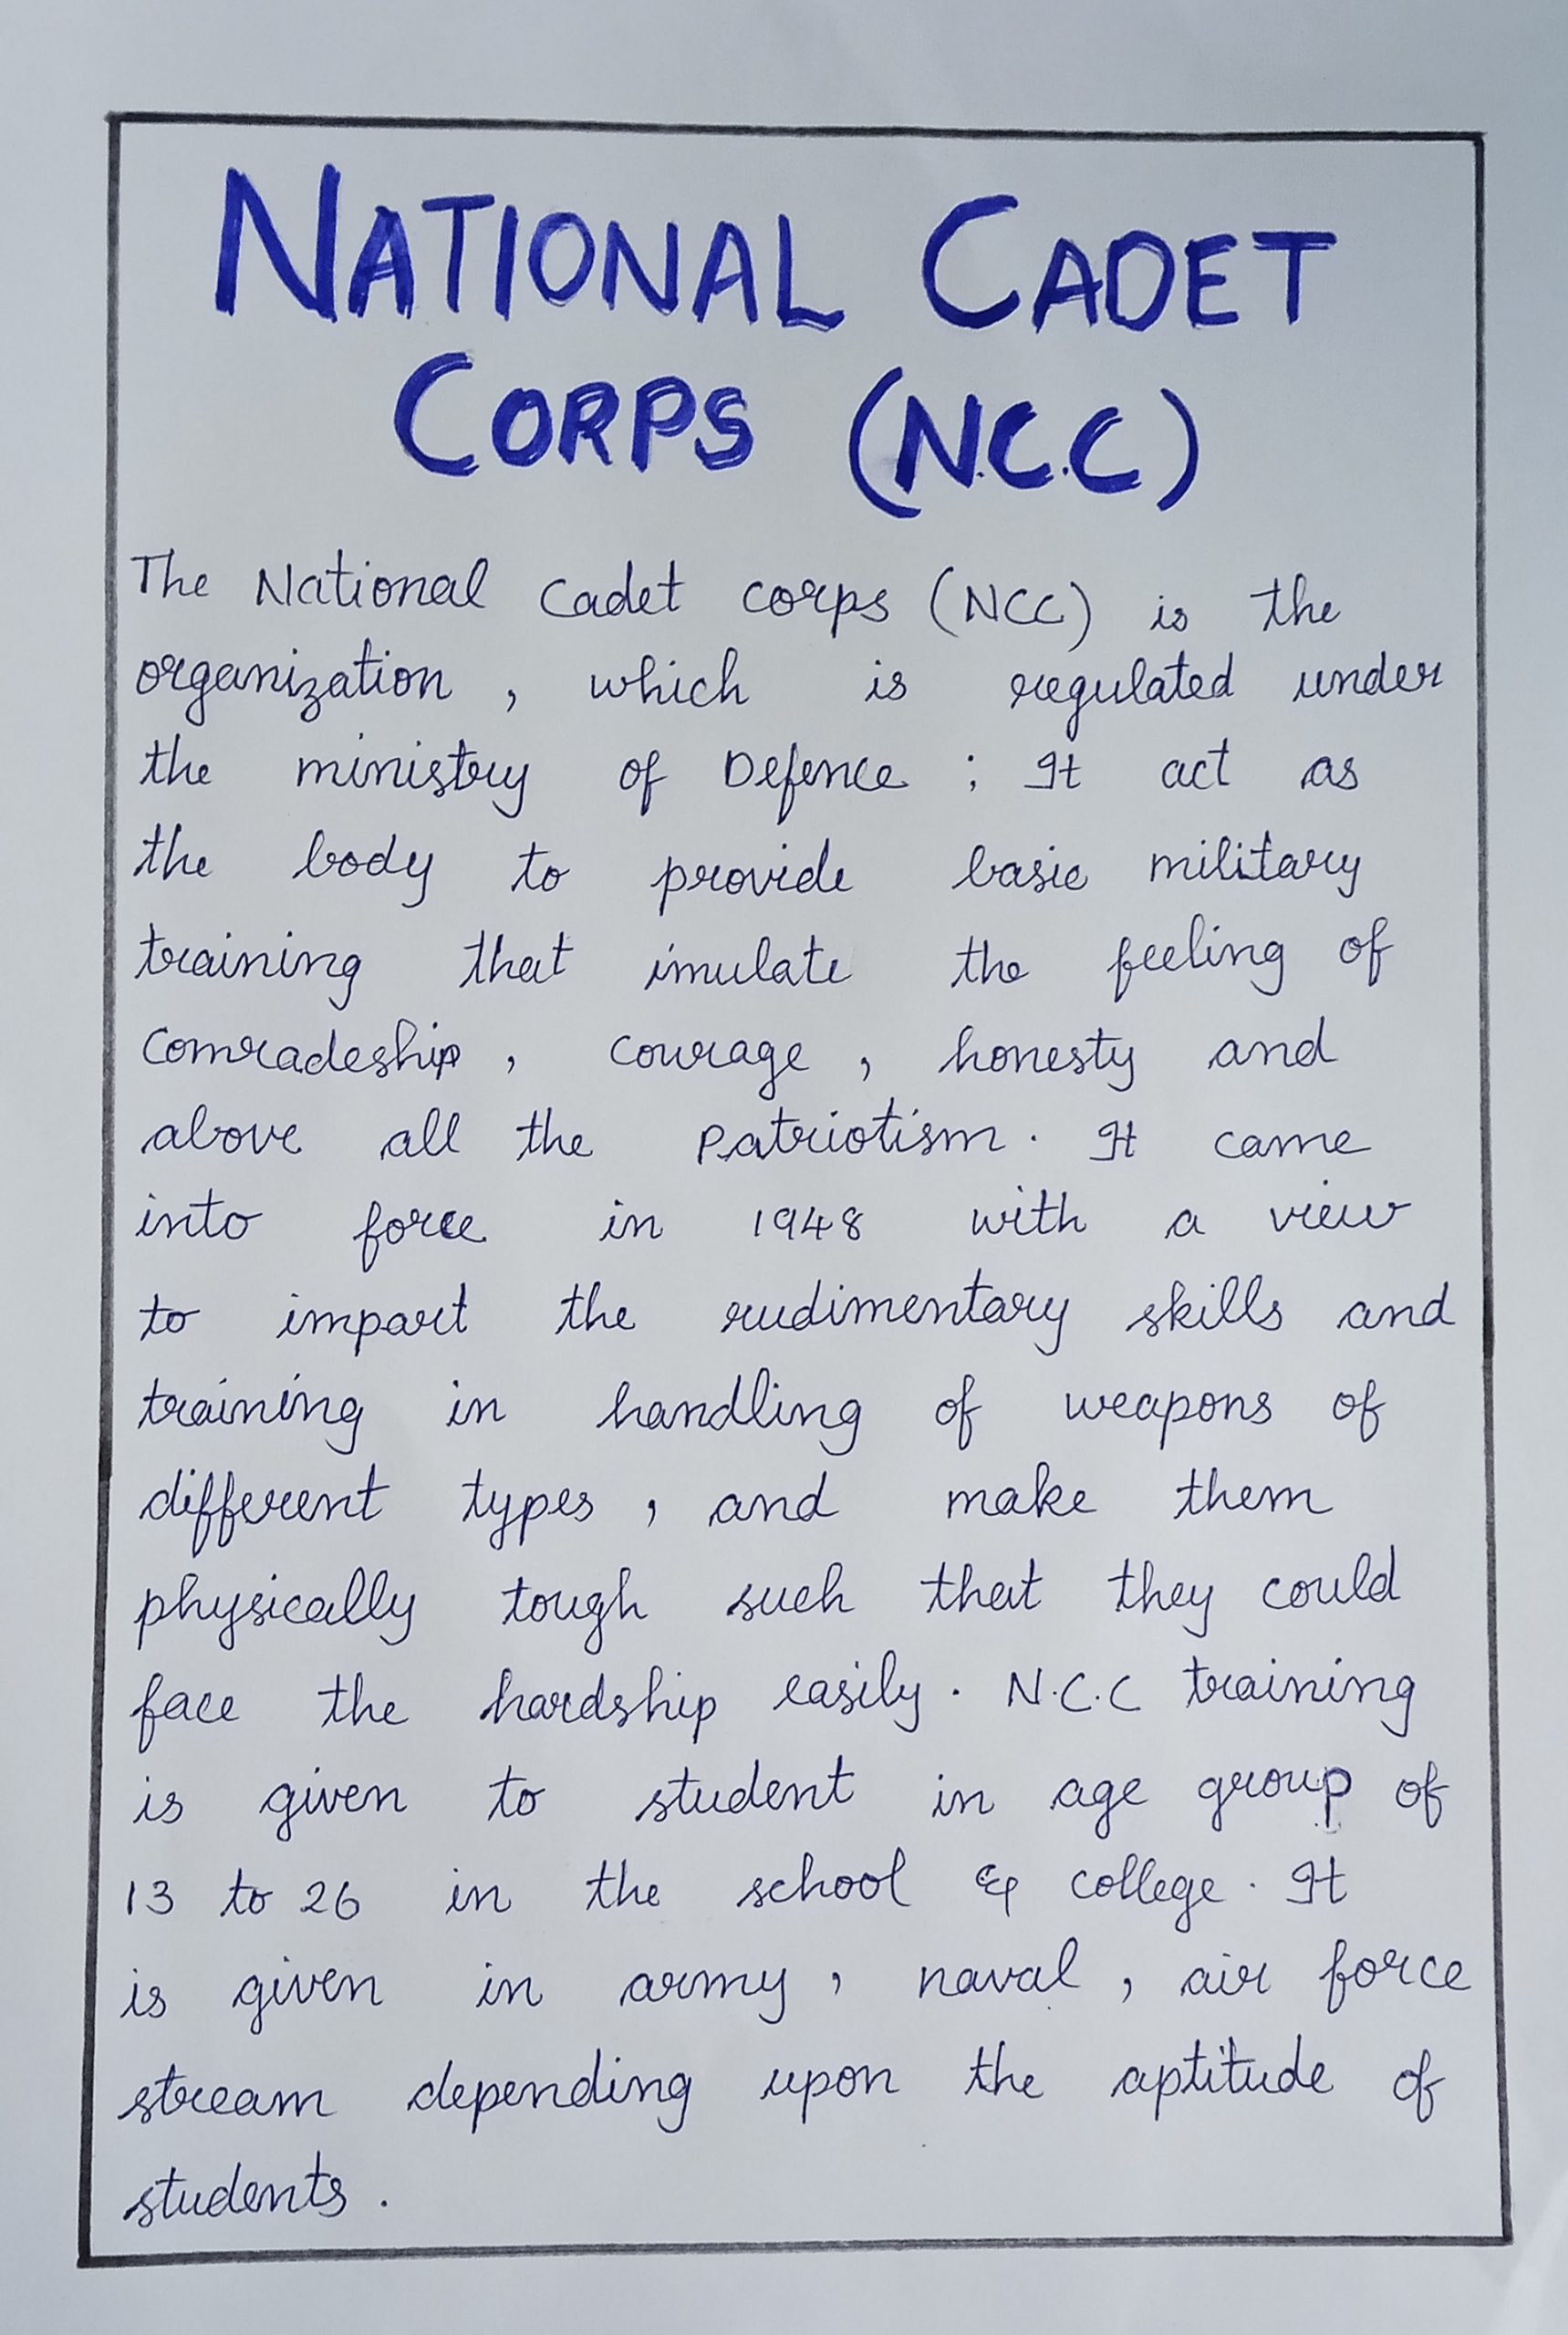 NATIONAL CADET
CORPS (N.C.C)
The National Cadet corps (NCC) is the
organization , which is regulated under
the ministry of Defence ; It act as
the body to provide basic military
training that imulate the feeling of
comradeship , courage , honesty and
above all the patriotism . It came
into force in 1948 with a view
to impart the rudimentary skills and
training in handling of weapons of
different types , and make them
physically tough such that they could
face the hardship easily . N.C.C training
is given to student in age group of
13 to 26 in the school & college . It
is given in army , naval , air force
stream depending upon the aptitude of
students .